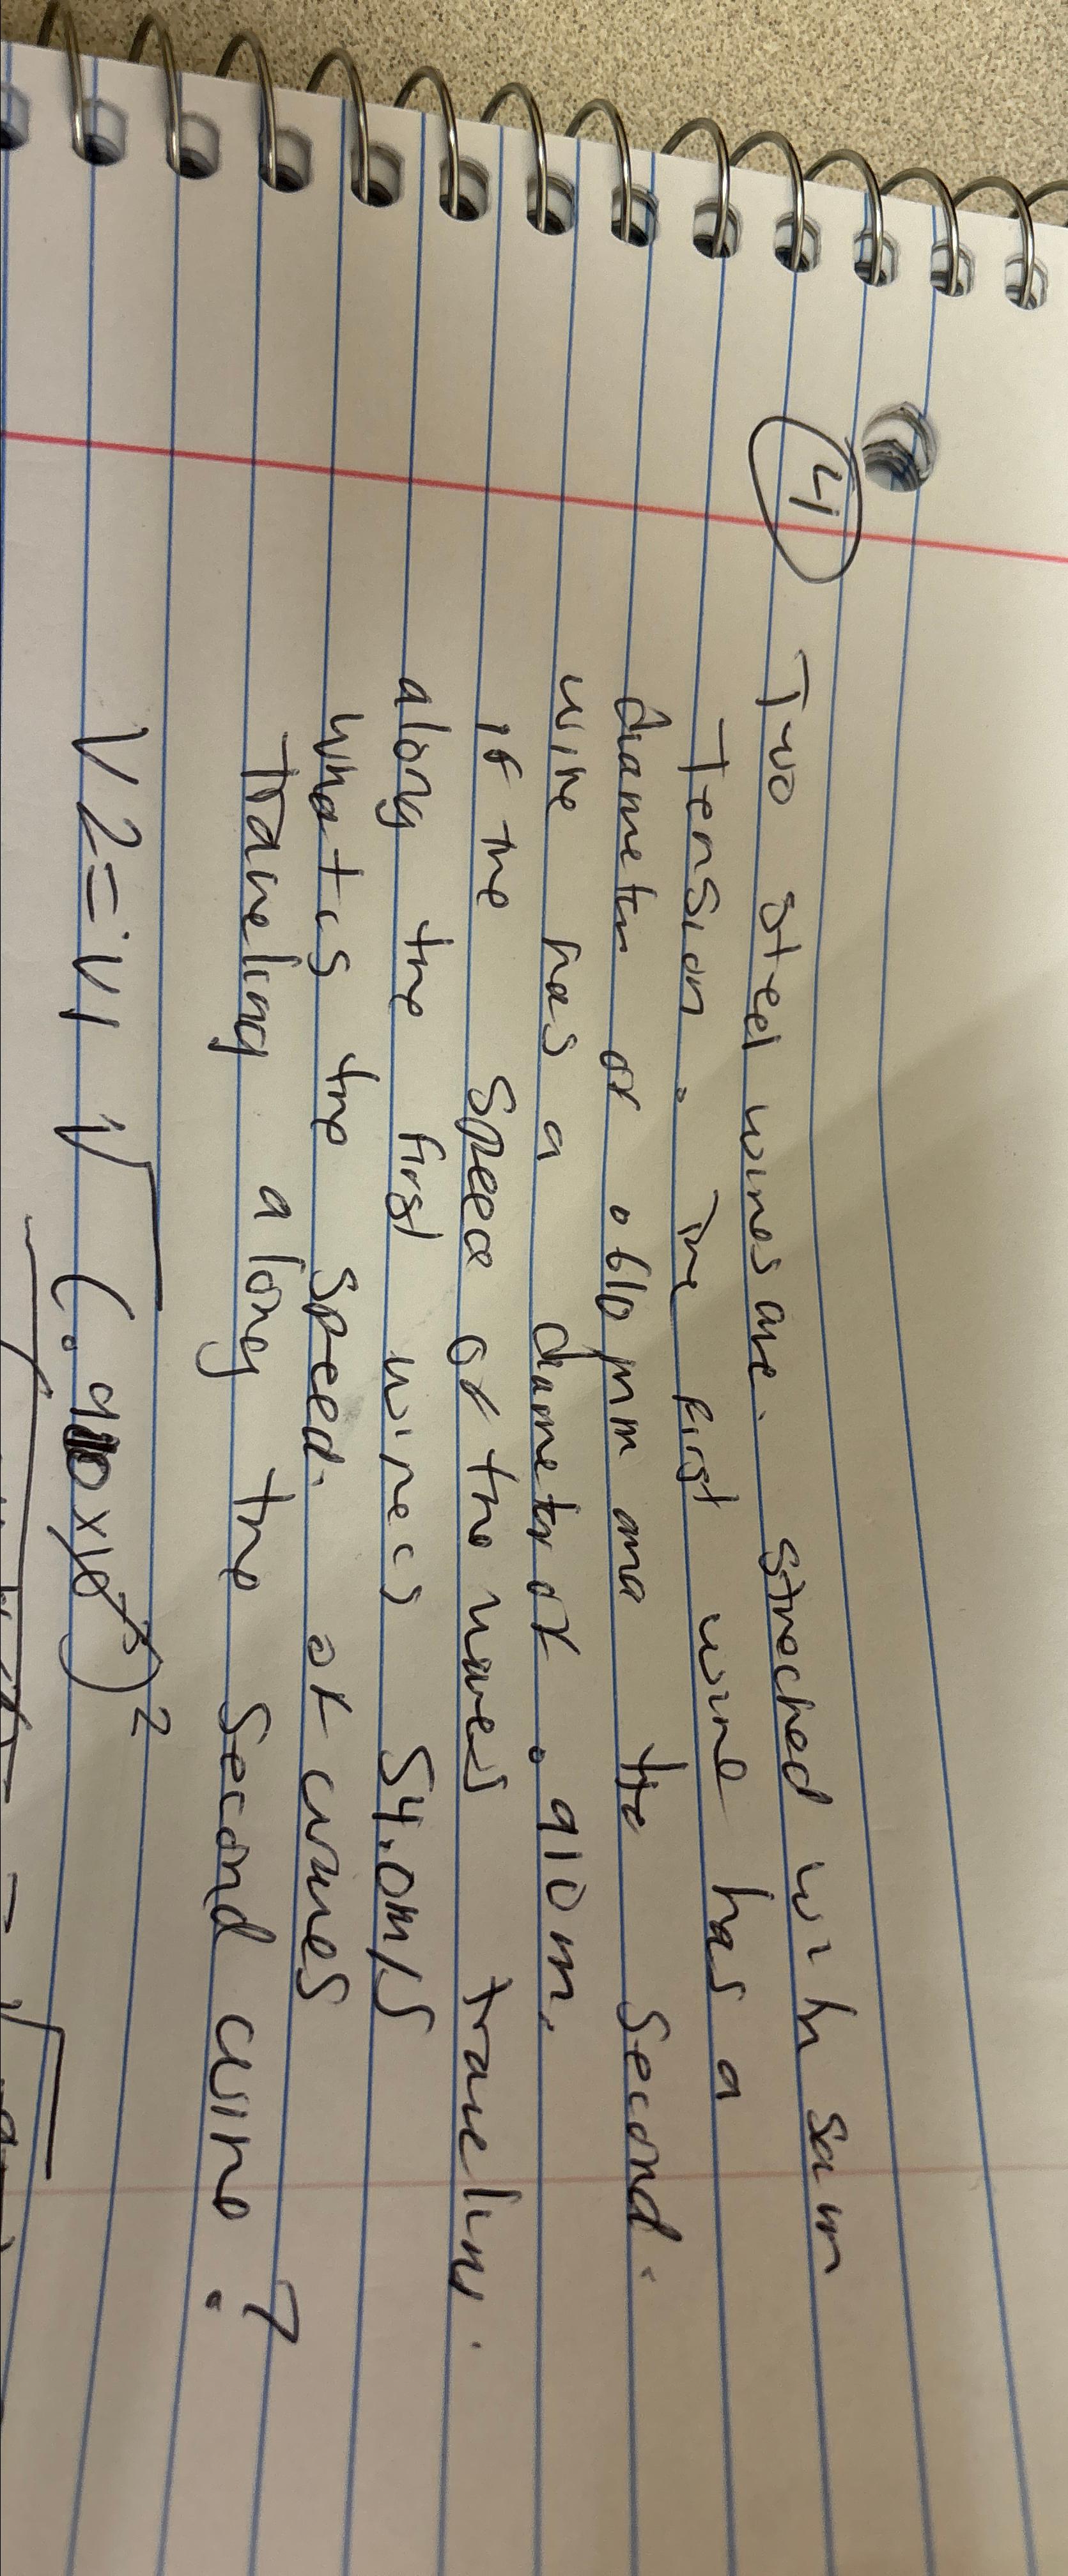 4
Two steel wires are. streched with sam
Tension. The first wire has a
diameter of .610 mm and the second.
wire has a diameter of .910 m,
if the speed of the waves traveling.
along the first wire is 54.0m/s
what is the speed. of waves
traveling along the second wire?
V2=V1 √ (.910x10⁻³)²